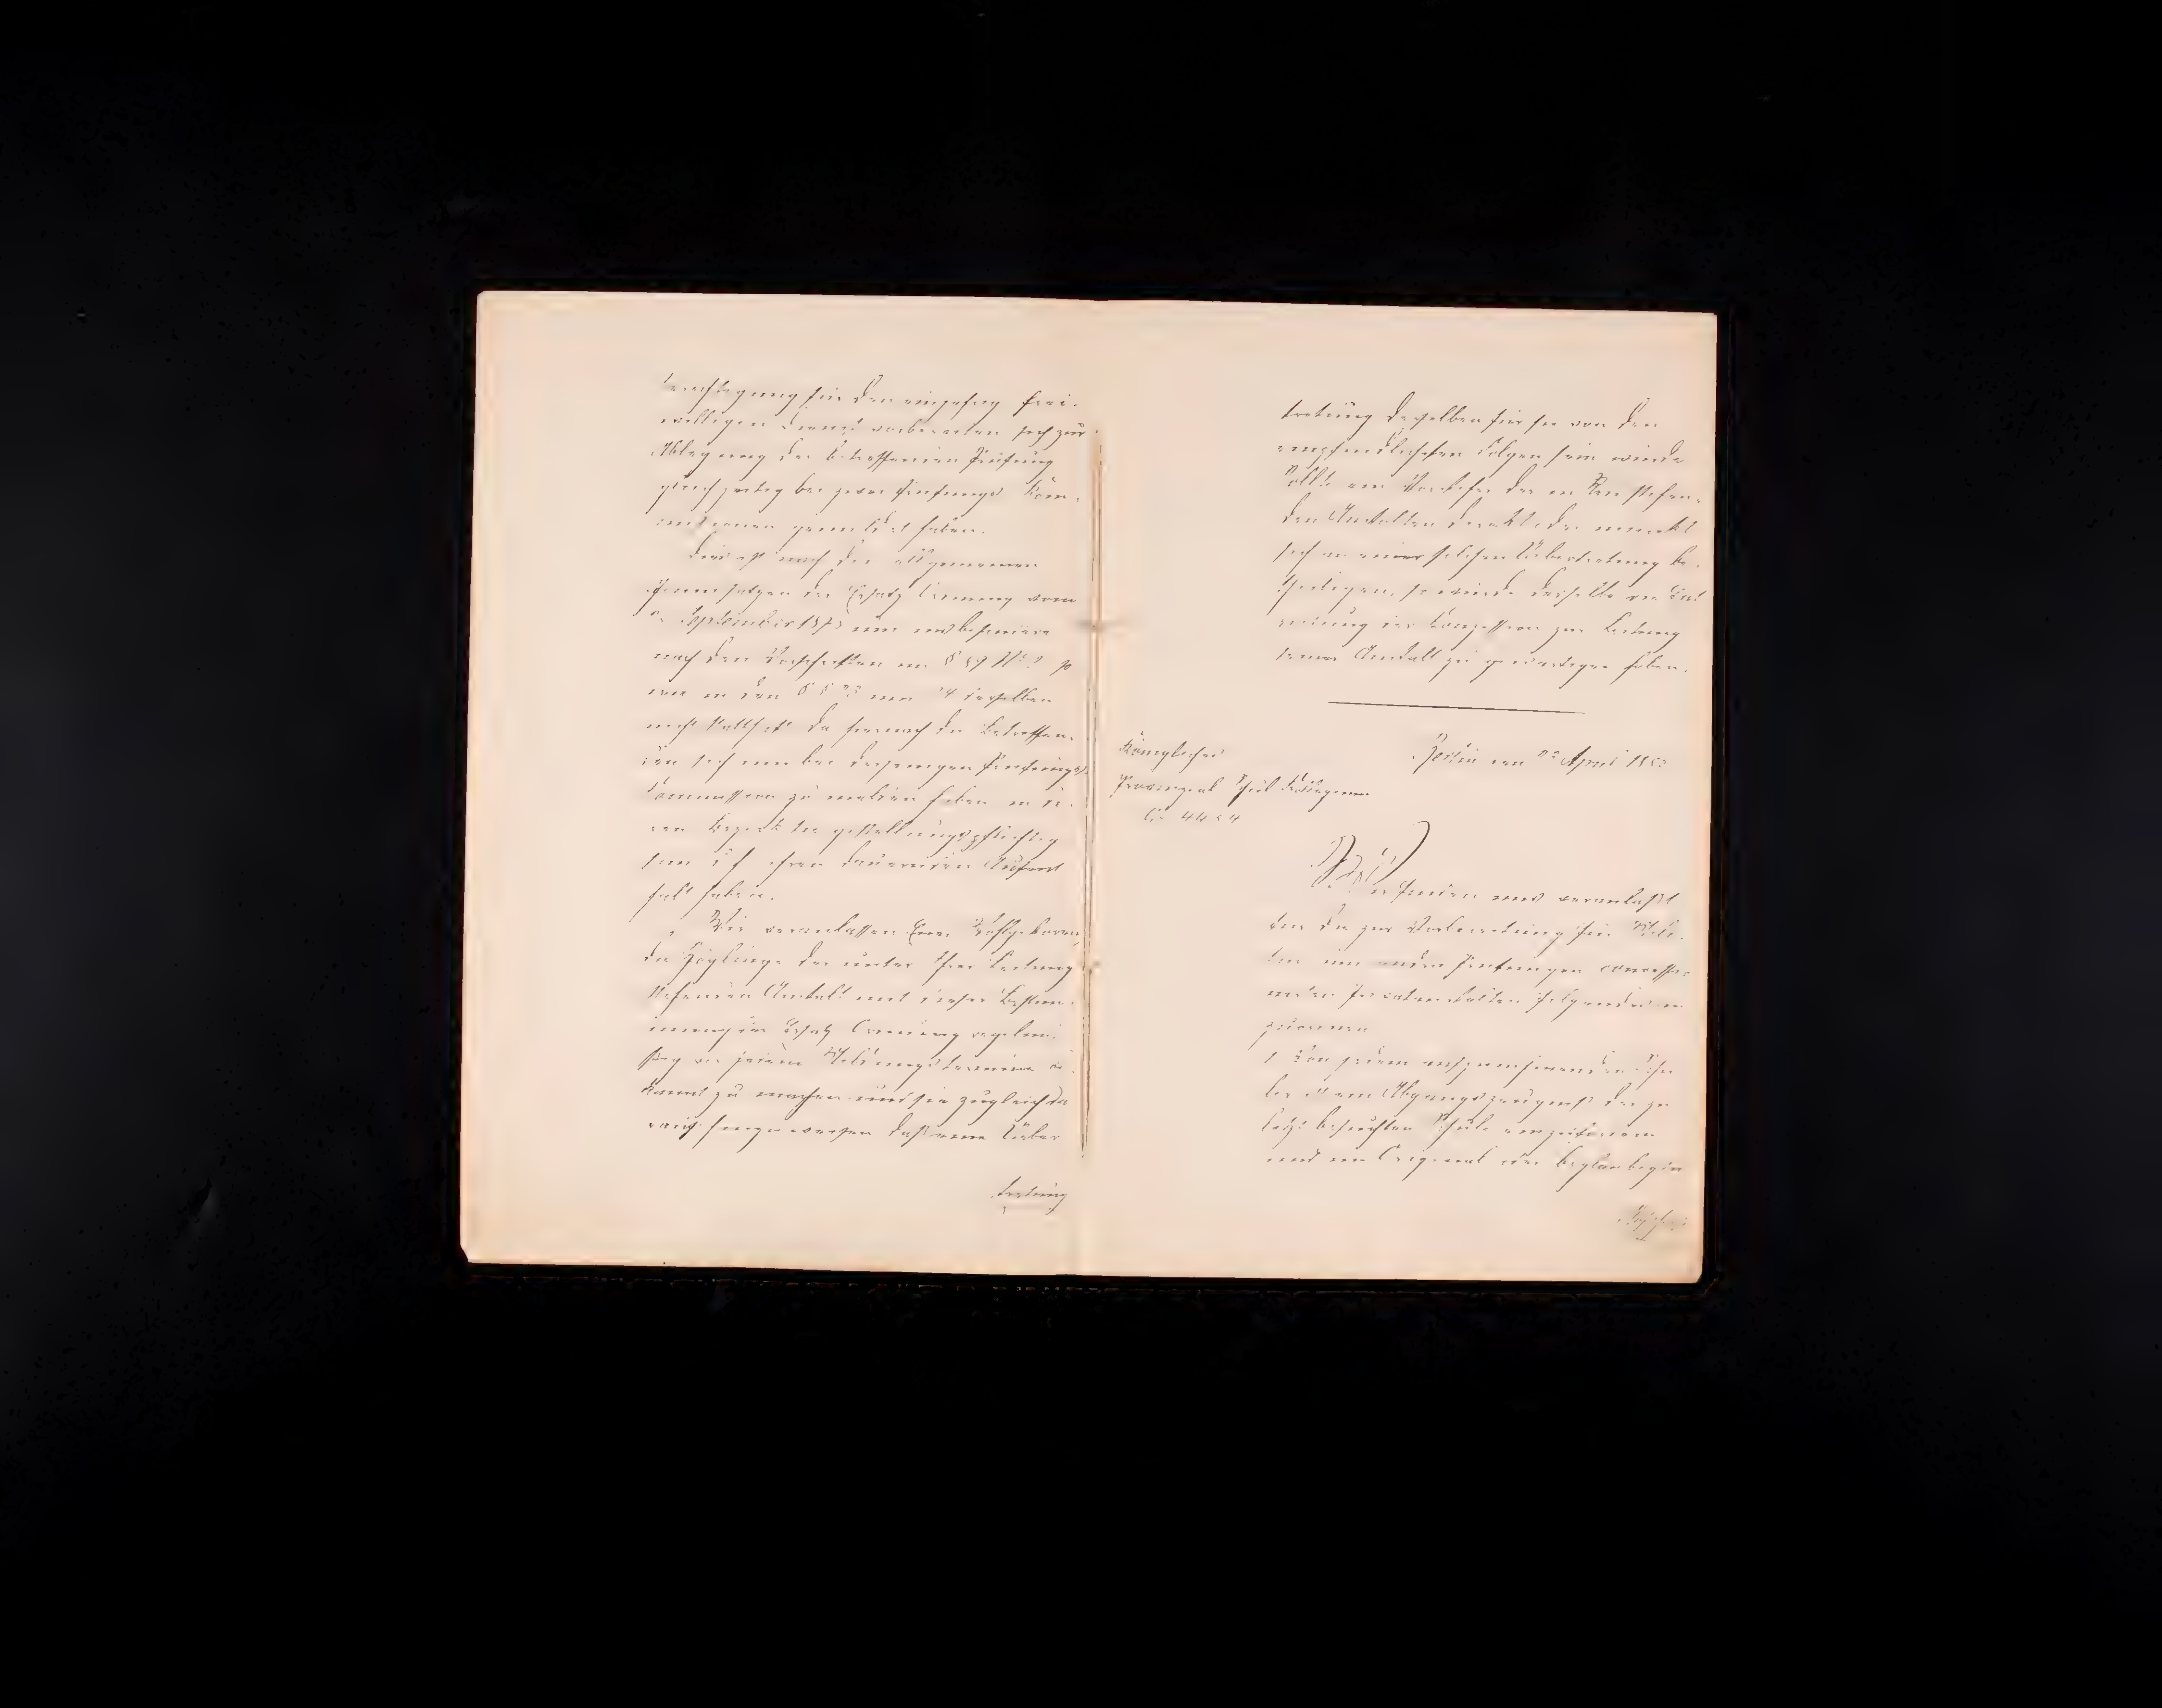 rechtigung für den einjährig frei-
willigen Dienst vorbereiten sich zur
Ablegung der betreffenden Prüfung
gleichzeitig bei zwei Prüfungs Kom-
missionen gemeldet haben.
Dies ist nach den allgemeinen
der Ersatz Ordnung vom
September 1875 und insbesondere
nach den Vorschriften im §
und in den §§ und derselben
nicht statthaft da hiernach die Betreffen-
den sich nur bei derjenigen Prüfungs
Kommission zu melden haben in de-
ren Bezirk sie gestellungspflichtig
sind ihren dauernden Aufent
halt haben.
Wir veranlassen Euer Wohlgeboren,
die Zöglinge der unter Ihrer Leitung
stehenden Anstalt mit dieser Bestim-
mung der Ersatz Ordnung regelmä
ßig vor jedem Meldungstermine be
kannt zu machen und sie zugleich da
rauf hinzuweisen daß eine Über
tretung
tretung derselben für sie von den
empfindlichsten Folgen sein würde
Sollte ein Vorsteher der in Rede stehen-
den Anstalten direkt oder indirekt
sich an einer solchen Übertretung be-
theiligen, so würde derselbe die Ent
ziehung der Konzession zur Leitung
seiner Anstalt zu gewärtigen haben.
Berlin den April
Königliches
Provinzial Schul Kollegium
Wir finden uns veranlaßt
die zur Vorbereitung für Mili
tär und andere Prüfungen concessio
nirten Privatanstalten Folgendes an
zuordnen
1 Von jedem aufzunehmenden Schü
ler ist ein Abgangszeugniß der zu
letzt besuchten Schule einzufordern
und im Original oder beglaubigter